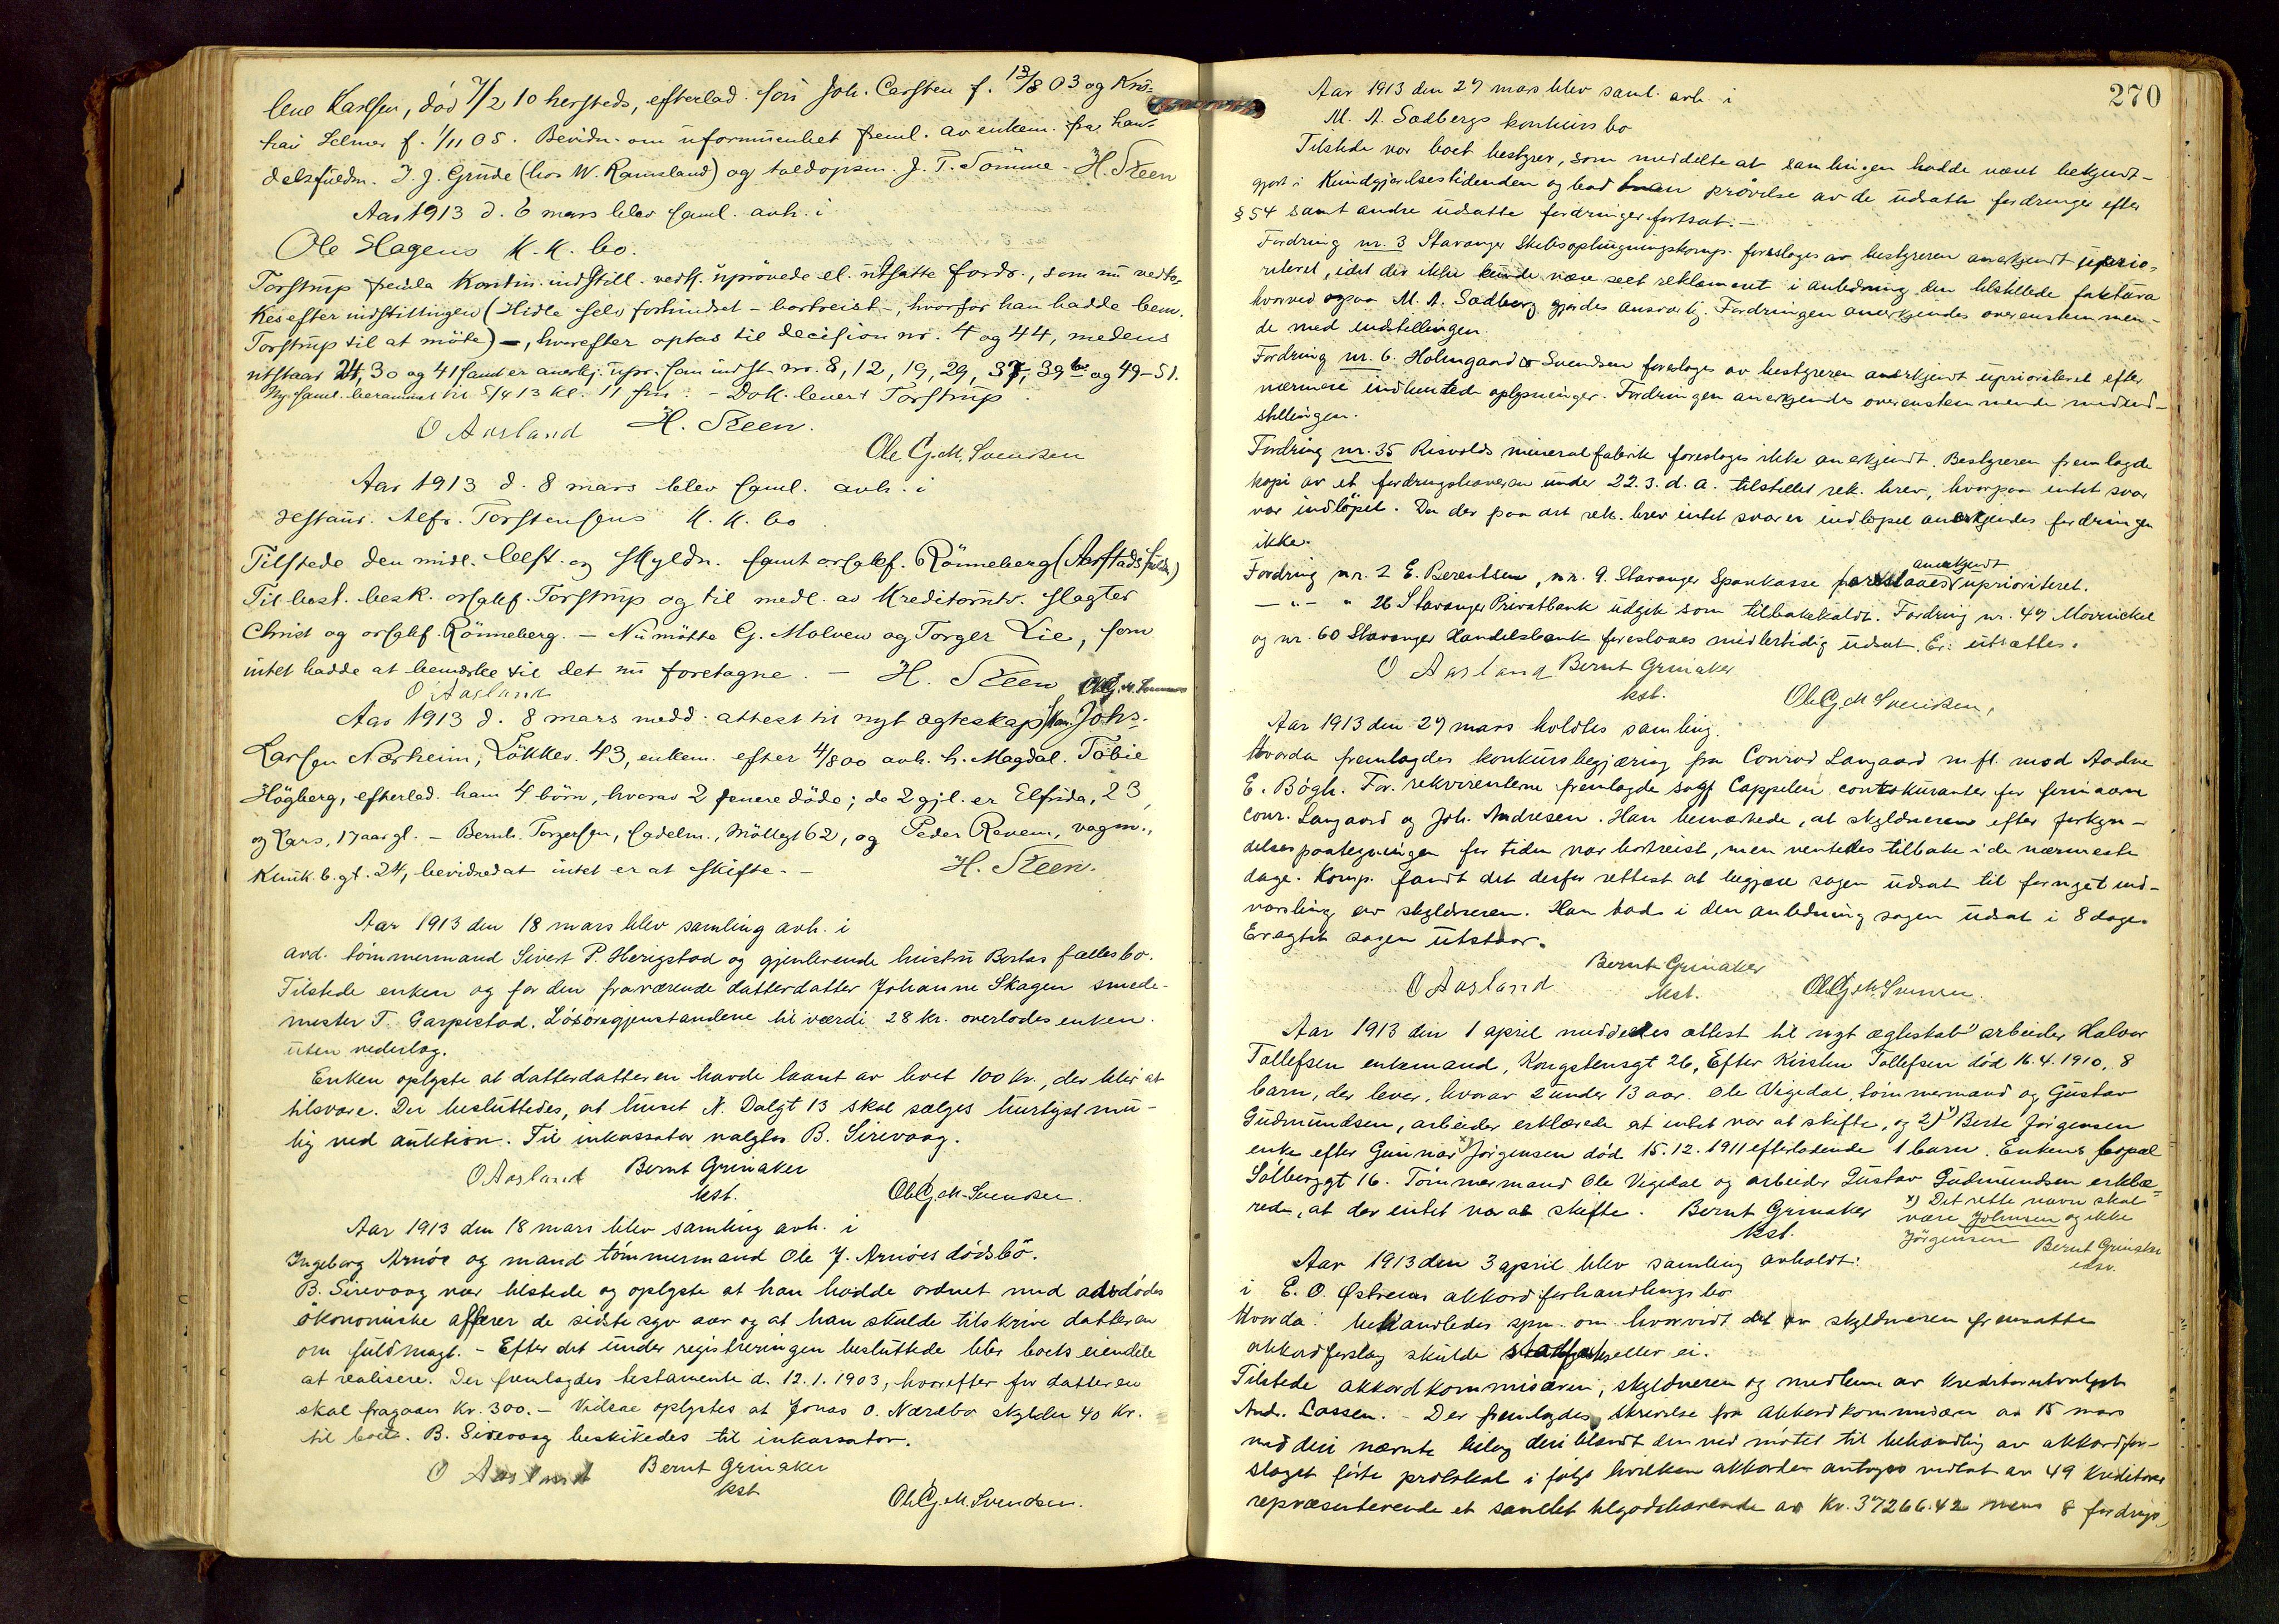 lene Karlsen, död 7/2 10 hersteds, efterlad. sön Joh. Carsten f. 13/8 03 og Kris-
han Selmer f. 1/11 05. Bevidn. om uformuenhet freml. av enkem. fra han-
delsfuldm. J. J. Grude (hos W. Ramsland) og toldopsm. J. T. Sömme - H. Steen
Aar 1913 d. 6 mars blev saml. avh. i
Ole Hagens K.K. bo.
Torstrup fremla Kontin. indstill. vedk. uprövede el. utsatte fordr., som nu vedto-
kes efter indstillingen (Hidle selv forhindret - bortreist -, hvorfor han hadde bem.
Torstrup til at möte) -, hvorefter optas til decision nr. 4 og 44, medens
utstaar 24, 30 og 41 samt er anerkj. upr. som indst. nr. 8, 12, 19, 29, 37, 39 b og 49-51.
Ny saml. berammet til 5/4 13 kl. 11 fm. - Dok. levert Torstrup.
O Aasland H. Steen.
Ole G. M. Svendsen
Aar 1913 d. 8 mars blev saml. avh. i
restaur. Alfr. Torstensens K.K. bo
Tilstede den midl. best. og skyldn. samt orsakf. Rönneberg (Aarstads fuldm.)
Til best. besk. orsakf. Torstrup og til medl. av Kreditorutv. slagter
Christ og orsakf. Rönneberg. - Nu mötte G. Molven og Torger Lie, som
intet hadde at bemerke til det nu foretagne. - H. Steen Ole G. M. Svendsen
O Aasland
Aar 1913 d. 8 mars medd. attest til nyt egteskap Johs.
Larsen Nærheim, Lökkev. 43, enkem. efter 4/8 00 avh. h. Magdal. Tobie
Högberg, efterlad. ham 4 börn, hvorav 2 senere döde; de 2 gjl. er Elfrida, 23,
og Lars, 17 aar gl. - Bernh. Torgersen, sadelm., Möllegt 62, og Peder Revem, vognm.,
Kinik. b. gt. 24, bevidned at intet er at skifte. - H. Steen.
Aar 1913 den 18 mars blev samling avh. i
avd. tömmermand Sivert P. Herigstad og gjenlevende hustru Bertas fællesbo.
Tilstede enken og for den fraværende datterdatter Johanne Skagen smede-
mester T. Garpestad. Lösöregjenstandene til værdi 28 kr. overlodes enken
uten vederlag.
Enken oplyste at datterdatteren havde laant av boet 100 kr., der blir at
tilsvare. Der besluttedes, at huset N. Dalgt 13 skal sælges hurtigst mu-
lig ved auktion. Til inkassator valgtes B. Sirevaag.
O Aasland Bernt Grinaker
kst. Ole G. M. Svendsen.
Aar 1913 den 18 mars blev samling avh. i
Ingeborg Arnöe og mand tömmermand Ole J. Arnöes dödsbo.
B. Sirevaag var tilstede og oplyste at han hadde ordnet med avdödes
ökonomiske affærer de sidste syv aar og at han skulde tilskrive datteren
om fuldmagt. - Efter det under registreringen besluttede blir boets eiendele
at realisere. Der fremlagdes testamente d. 12.1.1903, hvorefter for datteren
skal fragaar Kr. 300.- Videre oplystes at Jonas O. Nærebø skylder 40 Kr.
til boet. B. Sirevaag beskikkedes til inkassator.
O Aasland Bernt Grinaker
kst Ole G. M. Svendsen.
270
Aar 1913 den 27 mars blev saml. avh. i
M. A. Sædbergs konkurs bo
Tilstede var boets bestyrer, som meddelte at samlingen hadde været bekjendt-
gjort i Kundgjørelsestidenden og bad prövelse av de udsatte fordringer efter
§ 54 samt andre udsatte fordringer fortsat. -
Fordring nr. 3 Stavanger Skibsophugningskomp. foreslages av bestyreren anerkjendt uprio-
riteret, idet der ikke kunde være seet reklameret i anledning den tilstillede faktura
hvorved ogsaa M. A. Sædberg gjordes ansvarlig. Fordringen anerkjendes overenstemmen-
de med indstillingen.
Fordring nr. 6. Holmgaard & Svendsen foreslages av bestyreren anerkjendt uprioriteret efter
nærmere indhentede oplysninger. Fordringen anerkjendes overenstemmende med ind-
stillingen.
Fordring nr. 35 Risvolds mineralfabrik foreslages ikke anerkjendt. Bestyreren fremlagde
kopi av et fordringshaveren under 22.3. d.a. tilstillet rek. brev, hvorpaa intet svar
var indlöpet. Da der paa det rek. brev intet svar er indlöpet anerkjendes fordringen
ikke.
anerkjendt
Fordring nr. 2 E. Berentsen, nr. 9. Stavanger Sparekasse foreslaaes uprioriteret.
- " - " 26 Stavanger Privatbank udgik som tilbakekaldt. Fordring nr. 47 Mövinckel
og nr. 60 Stavanger Handelsbank foreslaaes midlertidig udsat. Er: utsættes.
O Aasland Bernt Grinaker
kst. Ole G. M Svendsen,
Aar 1913 den 27 mars holdtes samling.
Hvorda fremlagdes konkursbegjæring fra Conrad Langaard m. fl. mod Aadne
E. Bögh. For rekvirenterne fremlagde sagf Cappelen contokuranter for firmaerne
Conr. Langaard og Joh. Andresen. Han bemærkede, at skyldneren efter forkyn-
delsespaategningen for tiden var bortreist, men ventedes tilbake i de nærmeste
dage. Komp. fandt det derfor rettest at begjære sagen udsat til fornyet ind-
varsling av skyldneren. Han bad i den anledning sagen udsat i 8 dage.
Eragtet sagen utstaar.
O Aasland Bernt Grinaker
kst. Ole G. M. Svendsen.
Aar 1913 den 1 april meddeeles attest til nyt ægteskab 1) arbeider Halvor
Tollefsen enkemand, Kongstensgt 26, Efter Kirsten Tollefsen död 16.4.1910, 8
barn, der lever, hvorav 2 under 13 aar. Ole Vigedal, tömmermand og Gustav
Gudmundsen, arbeider erklærede at intet var at skifte, og 2) Berte Jörgensen
enke efter Gunnar x) Jörgensen död 15.12.1911 efterladende 1 barn. Enkens bopæl
Solberggt 16. Tömmermand Ole Vigedal og arbeider Gustav Gudmundsen erklæ-
rede, at der intet var at skifte. Bernt Grinaker
kst.
x) Det rette navn skal
være Johnsen og ikke
Jörgensen Bernt Grinaker
edsv.
Aar 1913 den 3 april blev samling avholdt:
i E. O. Østreims akkordforhandlings bo
Hvorda behandledes spm. om hvorvidt det av skyldneren fremsatte
akkordforslag skulde stadfæstes eller ei.
Tilstede akkordkommisæren, skyldneren og medlem av kreditorutvalget
And. Lassen. - Der fremlagdes skrivelse fra akkordkommisæren av 15 mars
med deri nævnte bilag deriblandt den ved mötet til behandling av akkordfor-
slaget förte protokol i fölge hvilken akkorden antoges vedtat av 49 kreditorer
repræsenterende et samlet tilgodehavende av Kr. 37266.42 mens 8 fordrings